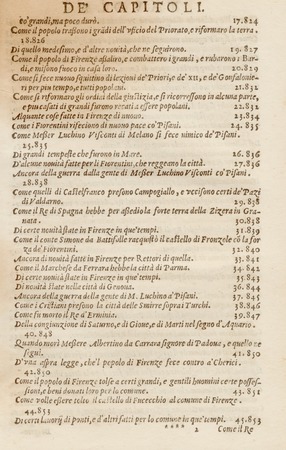 DE' CAPITOLI.
to grandi, ma poco durò. 17.824
Come il popolo trassono i grādi dell'vficio del Priorato, e riformaro la terra.
18.826
Di quello medesimo, e d'altre nouità, che ne seguirono. 19.827
Come il popolo di Firenze assaliro, e combattero i grandi, e rubaro i Bardi, e misono fuoco in casa loro. 20.829
Come si fece nuouo squittino di lezioni de' Priori, e de' XII, e de' Gonfalonieri per piu tempo, e tutti popolani. 21.831
Come si riformaro gli ordini della giustizia, e si ricorressono in alcuna parte, e piu casati di grandi furono recati a essere popolani. 22.831
Alquante cose fatte in Firenze di nuouo. 23.834
Come i Fiorentini rifeciono di nuouo pace co' Pisani. 24.835
Come Messer Luchino Visconti di Melano si fece nimico de' Pisani.
25.835
Di grandi tempeste che furono in Mare. 26.836
D'alcune nouità fatte per li Fiorentini, che reggeano la città. 27.836
Ancora della guerra dalla gente di Messer Luchino Visconti co' Pisani.
28.838
Come quelli di Castelfranco presono Campogiallo, e vccisono certi de' Pazi di Valdarno. 29.838
Come il Re di Spagna hebbe per assedio la forte terra della Zizera in Granata. 30.838
Di certe nouità state in Firenze in que' tempi. 31.839
Come il conte Simone da Battifolle racquistò il castello di Fronzele cō la forza de' Fiorentini. 32.840
Ancora di nouità fatti in Firenze per Rettori di quella. 33.841
Come il Marchese da Ferrara hebbe la città di Parma. 34.842
Di certe nouità state in Firenze in que' tempi. 35.843
Di nouità state nella città di Genoua. 36.844
Ancora della guerra della gente di M. Luchino a' Pisani. 37.844
Come i Cristiani presono la città delle Smirre sopra i Turchi. 38.846
Come fu morto il Re d'Erminia. 39.847
Della congiunzione di Saturno, e di Gioue, e di Marti nel segno d'Aquario.
40.848
Quando morì Messere Albertino da Carrara signore di Padoua, e quello ne seguì. 41.850
D'vna aspra legge, che'l popolo di Firenze fece contro a' Cherici.
42.850
Come il popolo di Firenze tolse a certi grandi, e gentili huomini certe possessioni, e beni donati loro per lo comune. 43.851
Come volle essere tolto il castello di Fucecchio al comune di Firenze.
44.853
Di certi lauorij di ponti, e d'altri fatti per lo comune in que' tempi. 45.853
**** 2 Come il Re